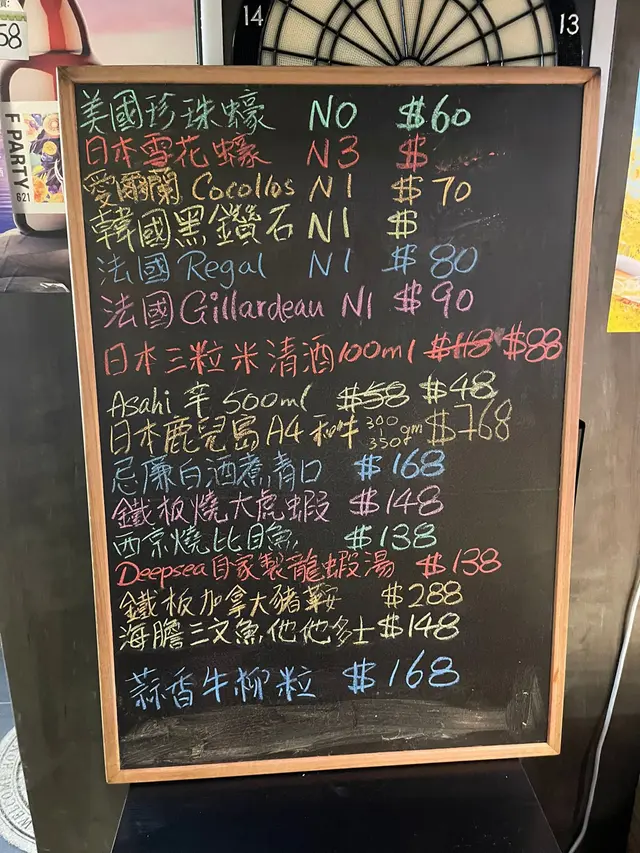 58
14
13
F PARTY
621
美國珍珠蠔 NO $60
日本雪花蠔 N3 $
愛爾蘭 Cocollos N1 $70
韓國黑鑽石 N1 $
法國 Regal N1 $80
法國 Gillardeau N1 $90
日本三粒米清酒100ml $118 $88
Asahi 辛 500ml $58 $48
日本鹿兒島A4和牛 300-350gm $768
忌廉白酒煮青口 $168
鐵板燒大虎蝦 $148
西京燒比目魚 $138
Deepsea自家製龍蝦湯 $138
鐵板加拿大豬鞍 $288
海膽三文魚他他多士 $148
蒜香牛柳粒 $168